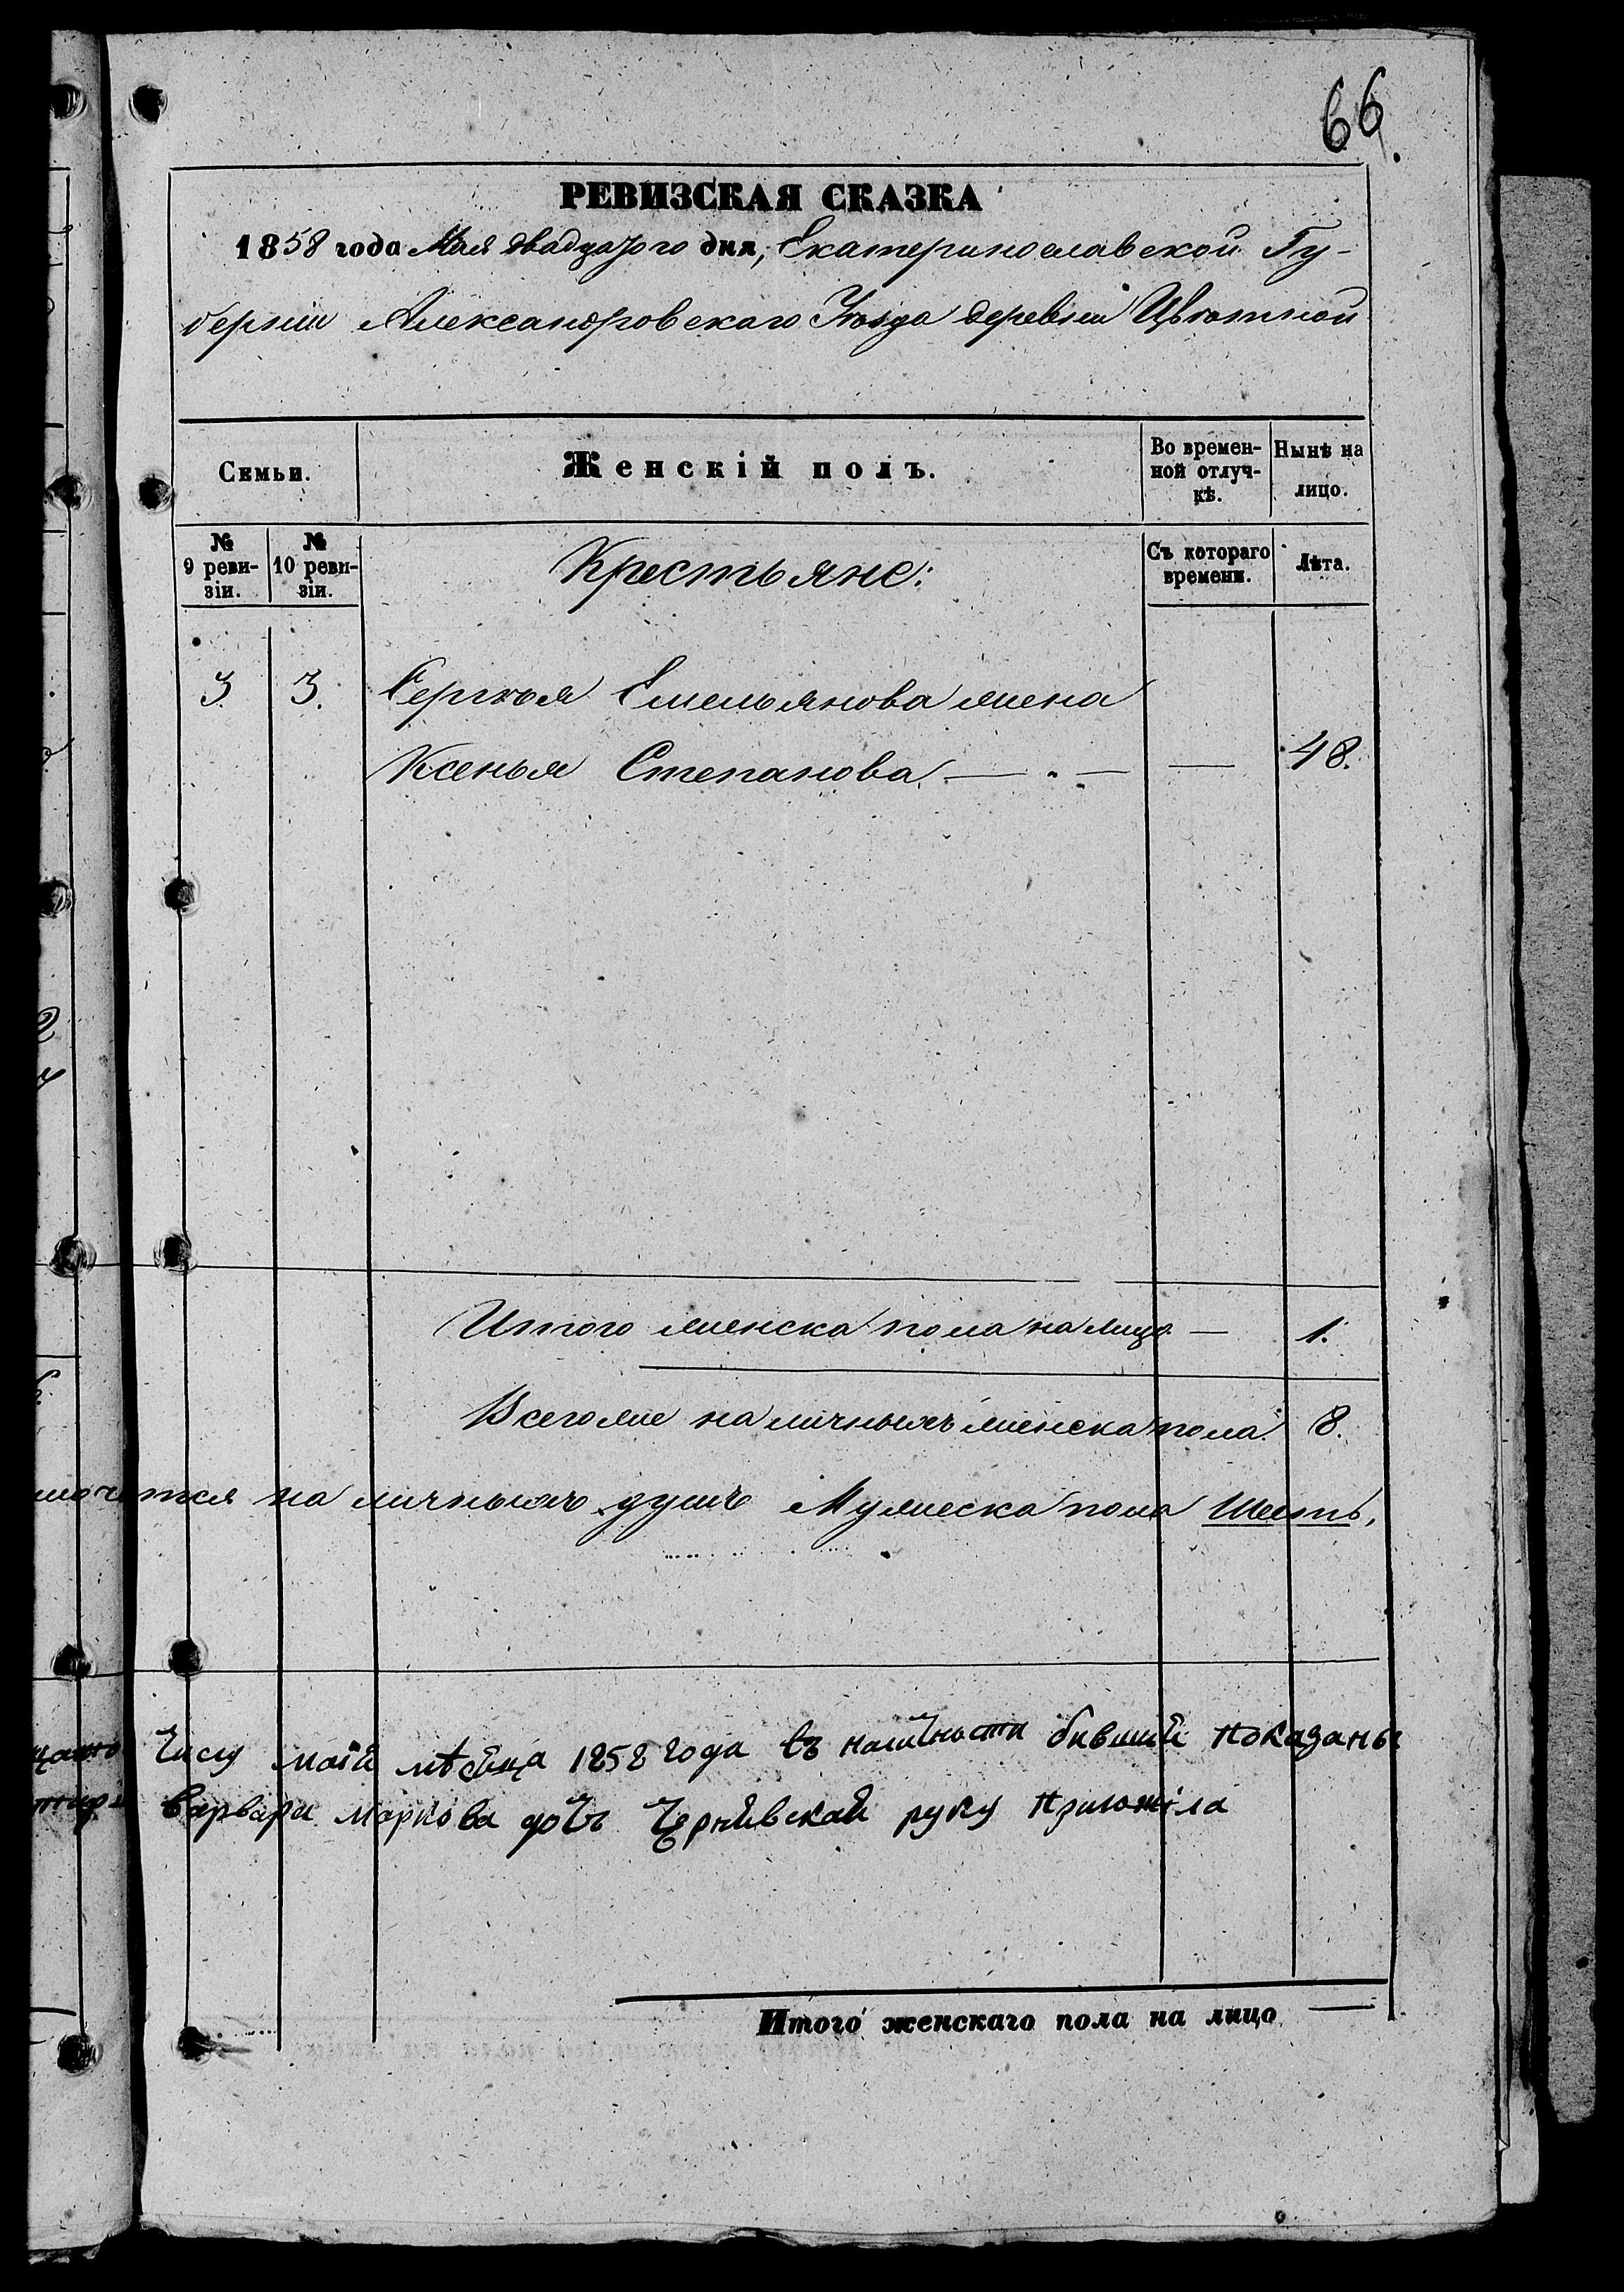 66.
РЕВИЗСКАЯ СКАЗКА
1858 года Мая двадцатого дня, Екатеринославской Гу-
берніи Александровскаго Уѣзда деревни Цвѣтной
Семьи.
Женскій полъ.
Во времен-
ной отлуч-
кѣ.
Нынѣ на
лицо.
№
9 реви-
зіи.
№
10 реви-
зіи.
Крестьяне:
Съ котораго
времени.
Лѣта.
3 3. Сергѣя Емельянова жена
Ксенья Степанова — — — 48.
Итого женска пола на лицо — 1.
Всего же наличныхъ женска пола 8.
тся наличныхъ душъ Мужеска пола Шесть,
Числу маія мѣсяца 1858 года въ наличности бившій показаны
варвара маркова дочъ руку приложила
Итого женскаго пола на лицо —